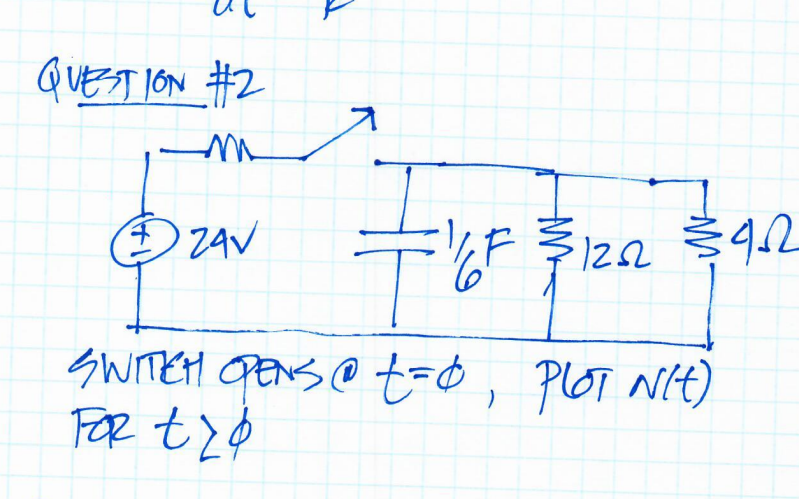 QUESTION #2
24V
1/6F
12Ω
4Ω
SWITCH OPENS @ t=ϕ, PLOT N(t)
FOR t ≥ ϕ